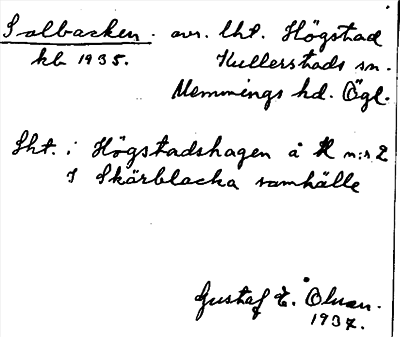 Solbacken. avs. lht. Högstad
kb 1935. Kullerstads sn.
Memmings hd. Ögl.
Lht. i Högstadshagen å R n:r 2
I Skärblacka samhälle
Gustaf E. Olsson.
1937.